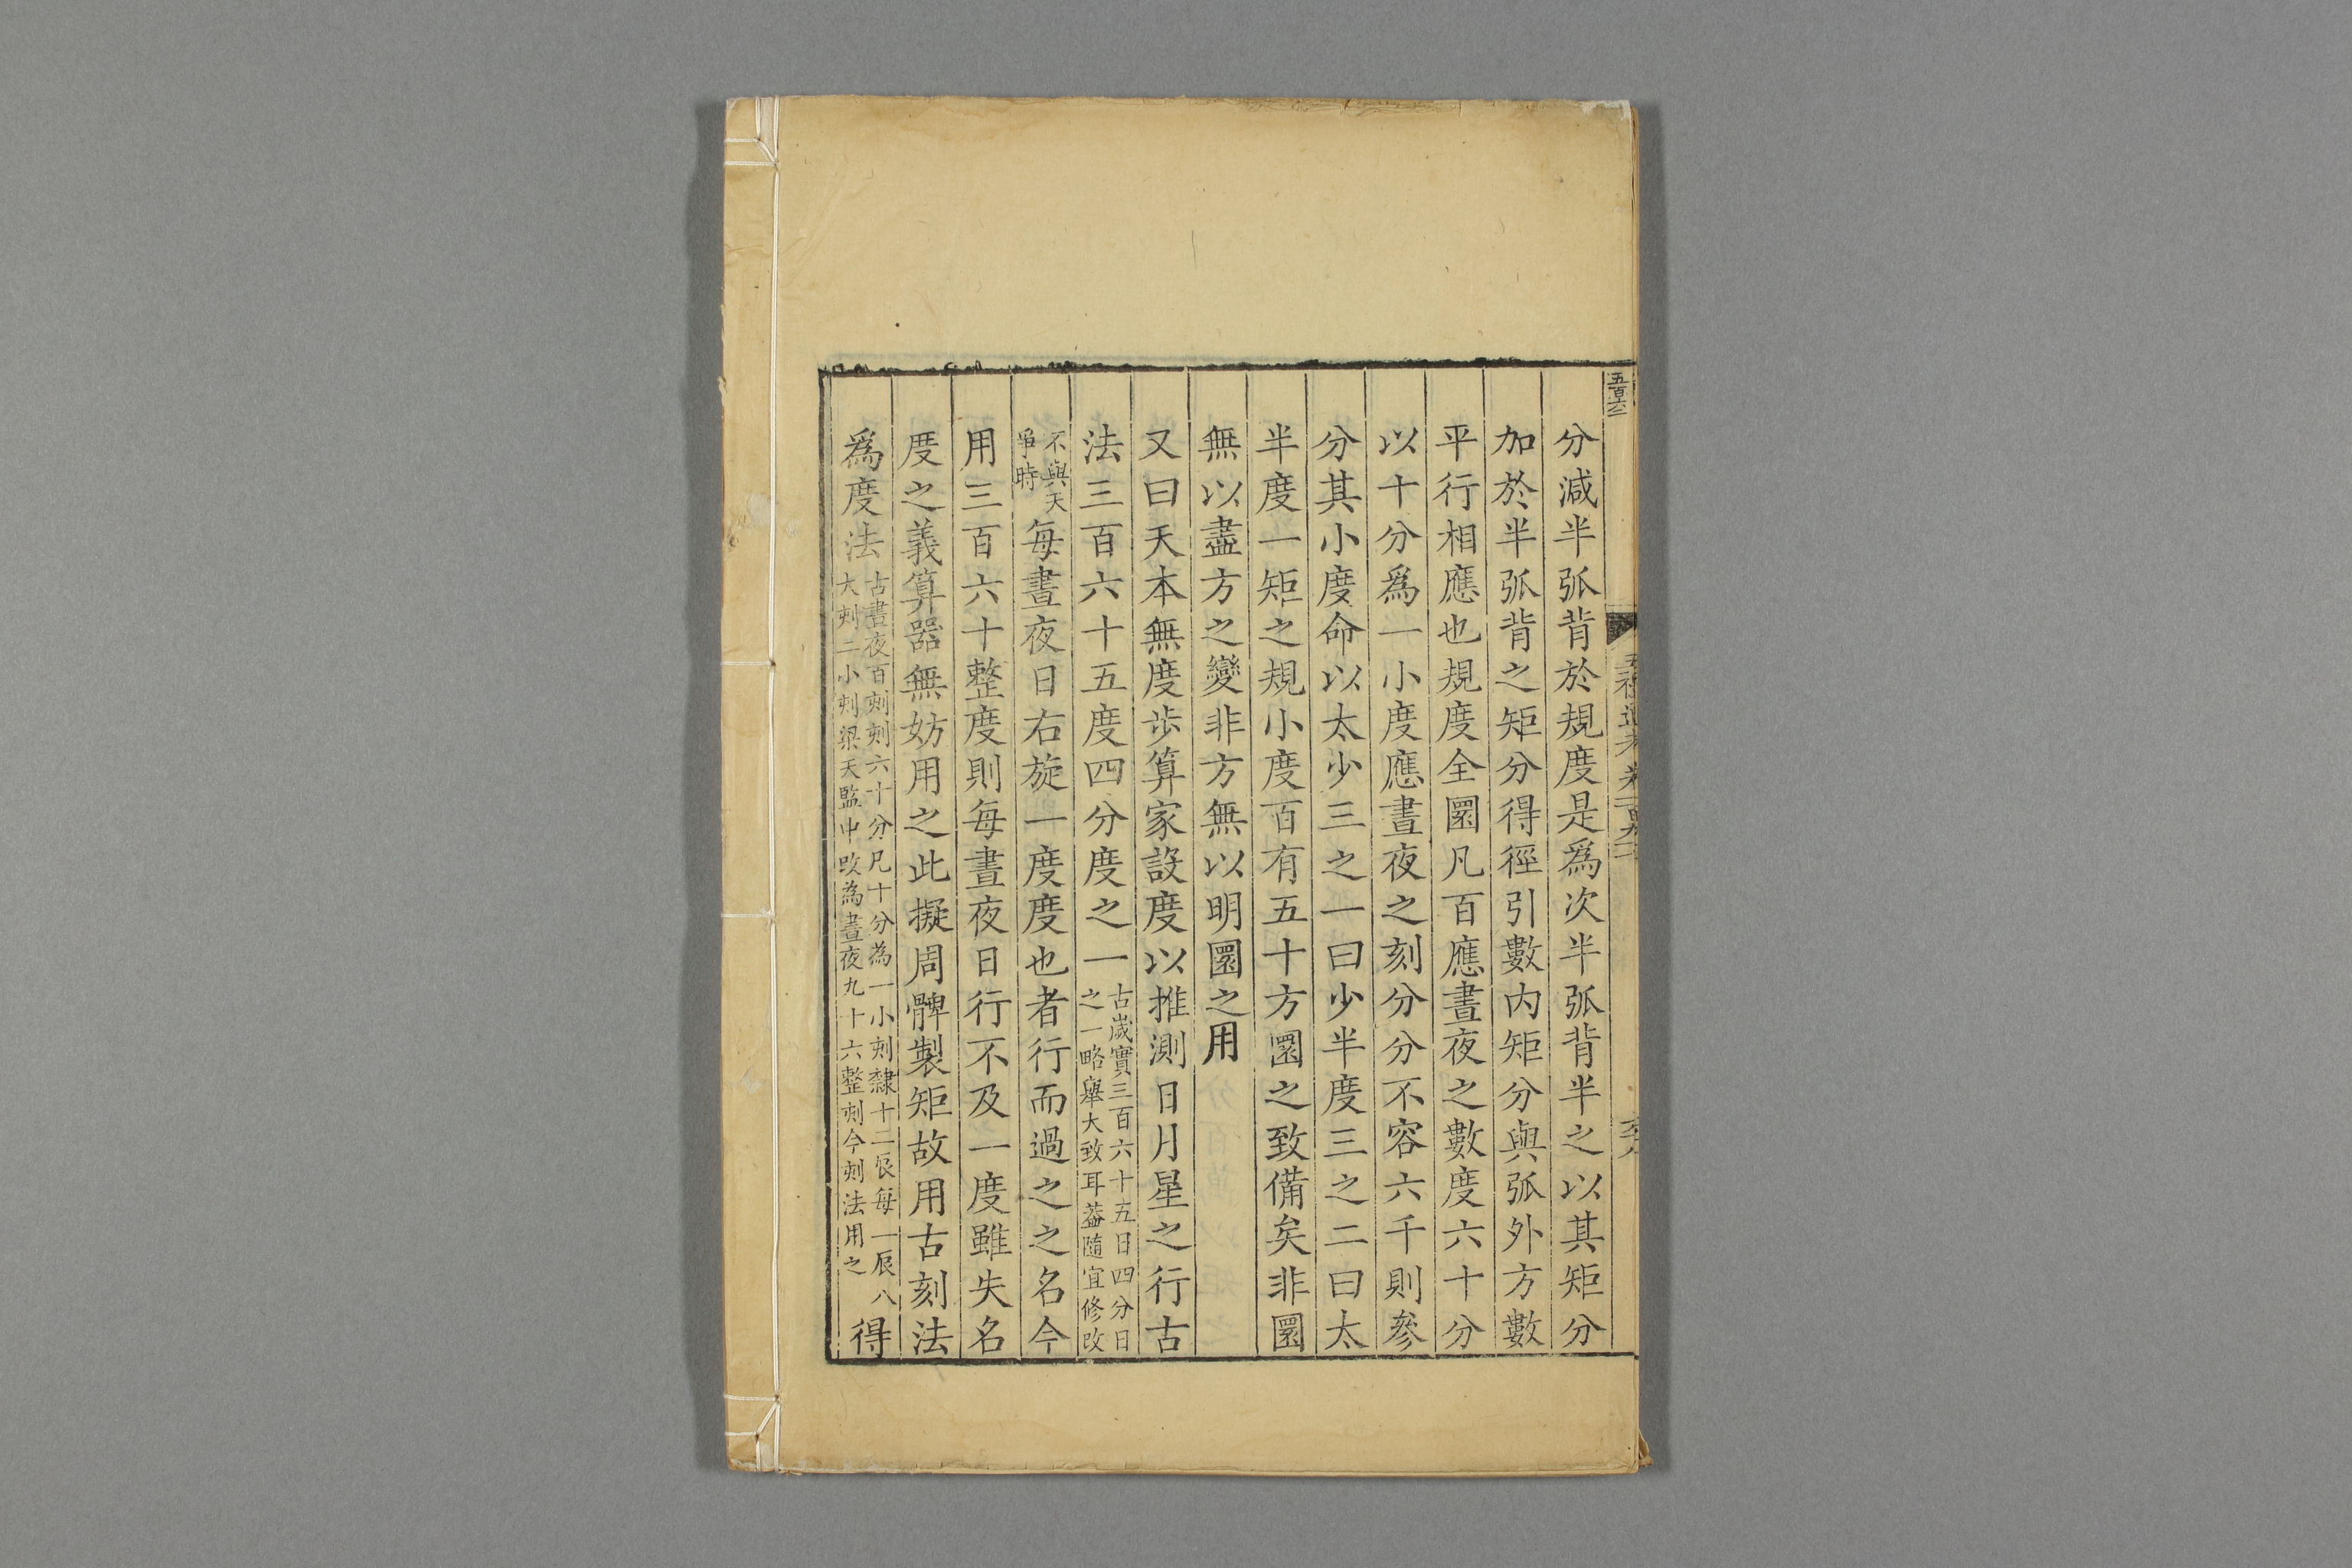 五百六
分減半弧背於規度是爲次半弧背半之以其矩分
加於半弧背之矩分得徑引數内矩分與弧外方數
平行相應也規度全圜凡百應晝夜之數度六十分
以十分爲一小度應晝夜之刻分分不容六千則參
分其小度命以太少三之一曰少半度三之二曰太
半度一矩之規小度百有五十方圜之致備矣非圜
無以盡方之變非方無以明圜之用
又曰天本無度步算家設度以推測日月星之行古
法三百六十五度四分度之一古歲實三百六十五日四分日之一略舉大致耳葢隨宜修改
不與天爭時每晝夜日右旋一度度也者行而過之之名今
用三百六十整度則每晝夜日行不及一度雖失名
度之義算器無妨用之此擬周髀製矩故用古刻法
爲度法古晝夜百刻刻六十分凡十分為一小刻隸十二辰每一辰八大刻二小刻梁天監中改為晝夜九十六整刻今刻法用之得